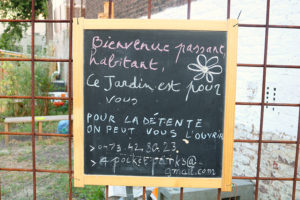 Bienvenue passant
habitant,
Ce Jardin est pour
vous
POUR LA DÉTENTE
ON PEUT VOUS L'OUVRIR
> 0473. 42 80 23.
> pocketparks@
gmail.com